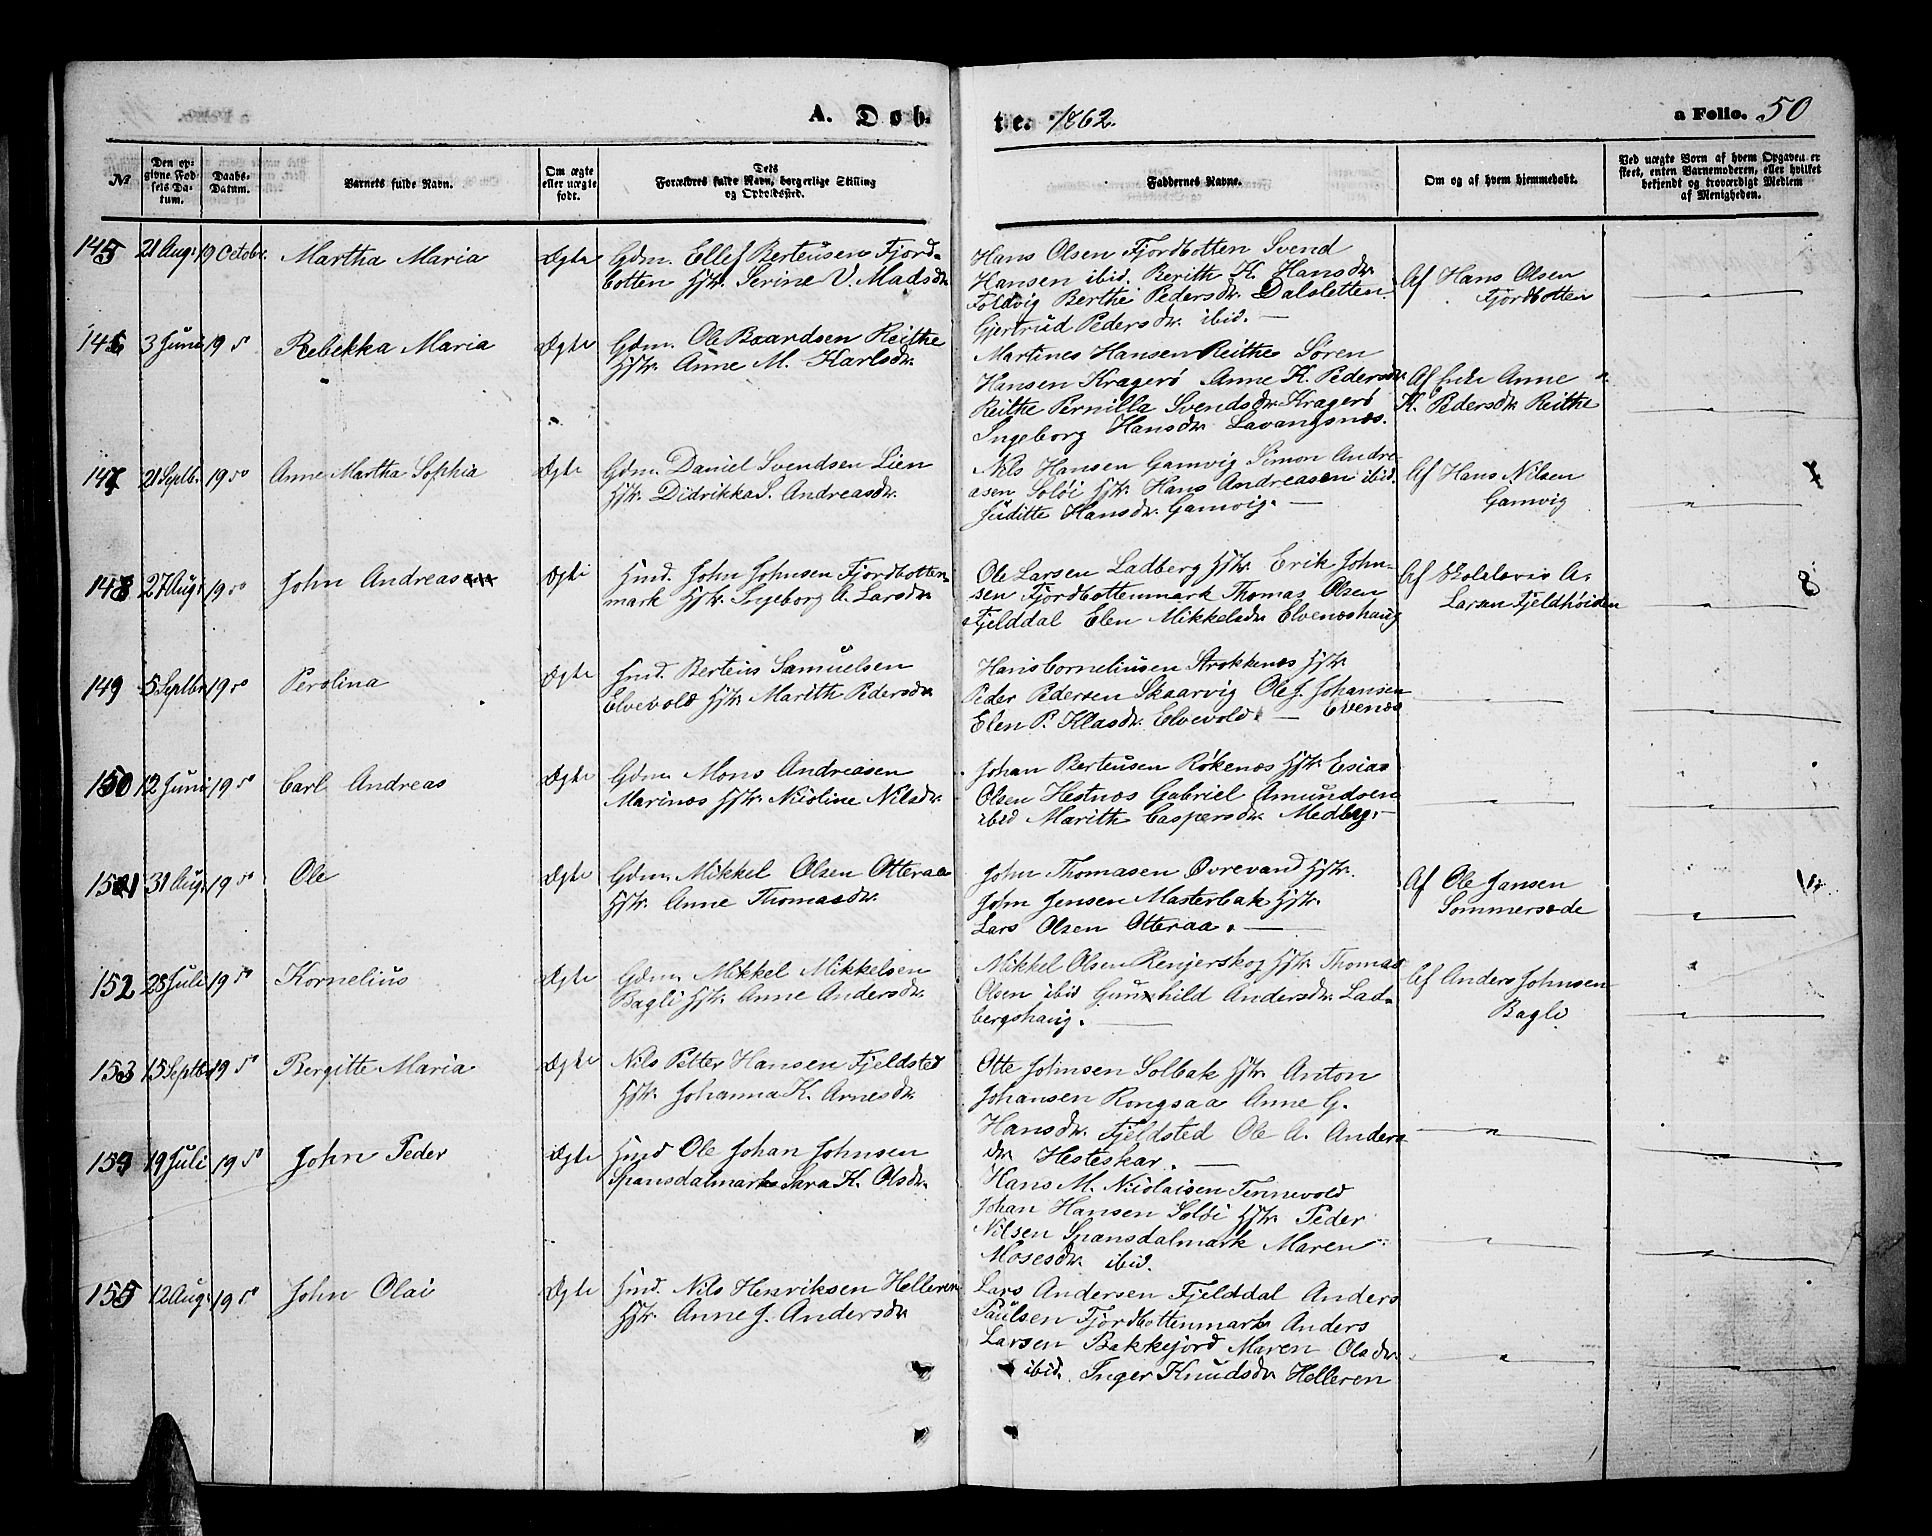 A. Døb- t e. 1862. a Folio. 50
№
Den opgivne Fødsels Datum.
Daabs-Datum.
Barnets fulde Navn.
Om ægte eller uægte født.
Dets Forældres fulde Navn, borgerlige Stilling og Opholdssted.
Faddernes Navne.
Om og af hvem hjemmedøbt.
Ved uægte Børn af hvem Opgaven er skeet, enten Barnemoderen, eller hvilket bekjendt og troværdigt Medlem af Menigheden.
145 21 Aug. 19 Octobr. Martha Maria Ægte
Gdm. Ellef Berteusen Fjord-
botten Hstr. Serine V. Madsdr.
Hans Olsen Fjordbotten Svend
Hansen ibid. Berith K. Hansdr.
Foldvig Berthe Pedersdr. Dalsletten
Gjertrud Pedersdr. ibid. —
Af Hans Olsen
Fjordbotten
146 3 Juni 19 s° Rebekka Maria Ægte
Gdm. Ole Baardsen Reithe
Hstr. Anne M. Karlsdr.
Martines Hansen Reithe Søren
Hansen Kragerö Anne K. Pedersdr.
Reithe Pernilla Svendsdr. Kragerö
Ingeborg Hansdr. Lavangsnæs.
Af Anne
K. Pedersdr. Reithe
147 21 Septb. 19 s° Anne Martha Sophia Ægte
Gdm. Daniel Svendsen Lien
Hstr. Didrikka S. Andreasdr.
Nils Hansen Gamvig Simon Andre-
asen Soløi Hstr. Hans Andreasen ibid.
Juditte Hansdr. Gamvig. —
Af Hans Nilsen
Gamvig
7
148 27 Aug. 19 s° John Andreas Ægte
Hmd. John Johnsen Fjordbotten-
mark Hstr. Ingeborg A. Larsdr.
Ole Larsen Ladberg Hstr. Erik John-
sen Fjordbottenmark Thomas Olsen
Fjelddal Elen Mikkelsdr. Elvenæshaug
Af Skolelærer A.
Larsen Fjeldhøiden
8
149 5 Septbr 19 s° Perolina Ægte
Hmd. Berteus Samuelsen
Elvevold Hstr. Marith Pedersdr.
Hans Corneliusen Strokkenæs Hstr.
Peder Pedersen Skaarvig Ole J. Johansen
Elen P. Klasdr. Elvevold. — Evenæs
150 12 Juni 19 s° Carl Andreas Ægte
Gdm. Mons Andreasen
Marinæs Hstr. Nicoline Nilsdr.
Johan Berteusen Røkenæs Hstr. Esias
Olsen Hestnæs Gabriel Amundsen
ibid Marith Caspersdr. Medbye. —
151 31 Aug. 19 s° Ole Ægte
Gdm. Mikkel Olsen Otteraa
Hstr. Anne Thomasdr.
John Thomasen Øvrevand Hstr.
John Jensen Masterbak Hstr.
Lars Olsen Otteraa. —
Af Ole Jansen
Sommersæde
152 28 Juli 19 s° Kornelius Ægte
Gdm. Mikkel Mikkelsen
Bagli Hstr. Anne Andersdr.
Mikkel Olsen Renjerskog Hstr. Thomas
Olsen ibid Gunhild Andersdr. Lad-
bergshaug. —
Af Anders Johnsen
Bagli
153 15 Septbr 19 s° Bergitte Maria Ægte
Nils Petter Hansen Fjeldsted
Hstr. Johanna K. Arnesdr.
Otte Johnsen Solbak Hstr. Anton
Johansen Rongsaa Anne G.
Hansdr. Fjeldsted Ole A. Anders
dr. Hesteskar. —
154 19 Juli 19 s° John Peder Ægte
Hmd Ole Johan Johnsen
Spansdalmark Sara K. Olsdr.
Hans M. Nicolaisen Tennevold
Johan Hansen Soløi Hstr. Peder
Nilsen Spansdalmark Maren
Mosesdr. ibid.
155 12 Aug. 19 s° John Olai Ægte
Hmd. Nils Henriksen Helleren
Hstr. Anne J. Andersdr.
Lars Andersen Fjelddal Anders
Paulsen Fjordbottenmark Anders
Larsen Bakkejord Maren Olsdr.
ibid. Inger Knudsdr. Helleren